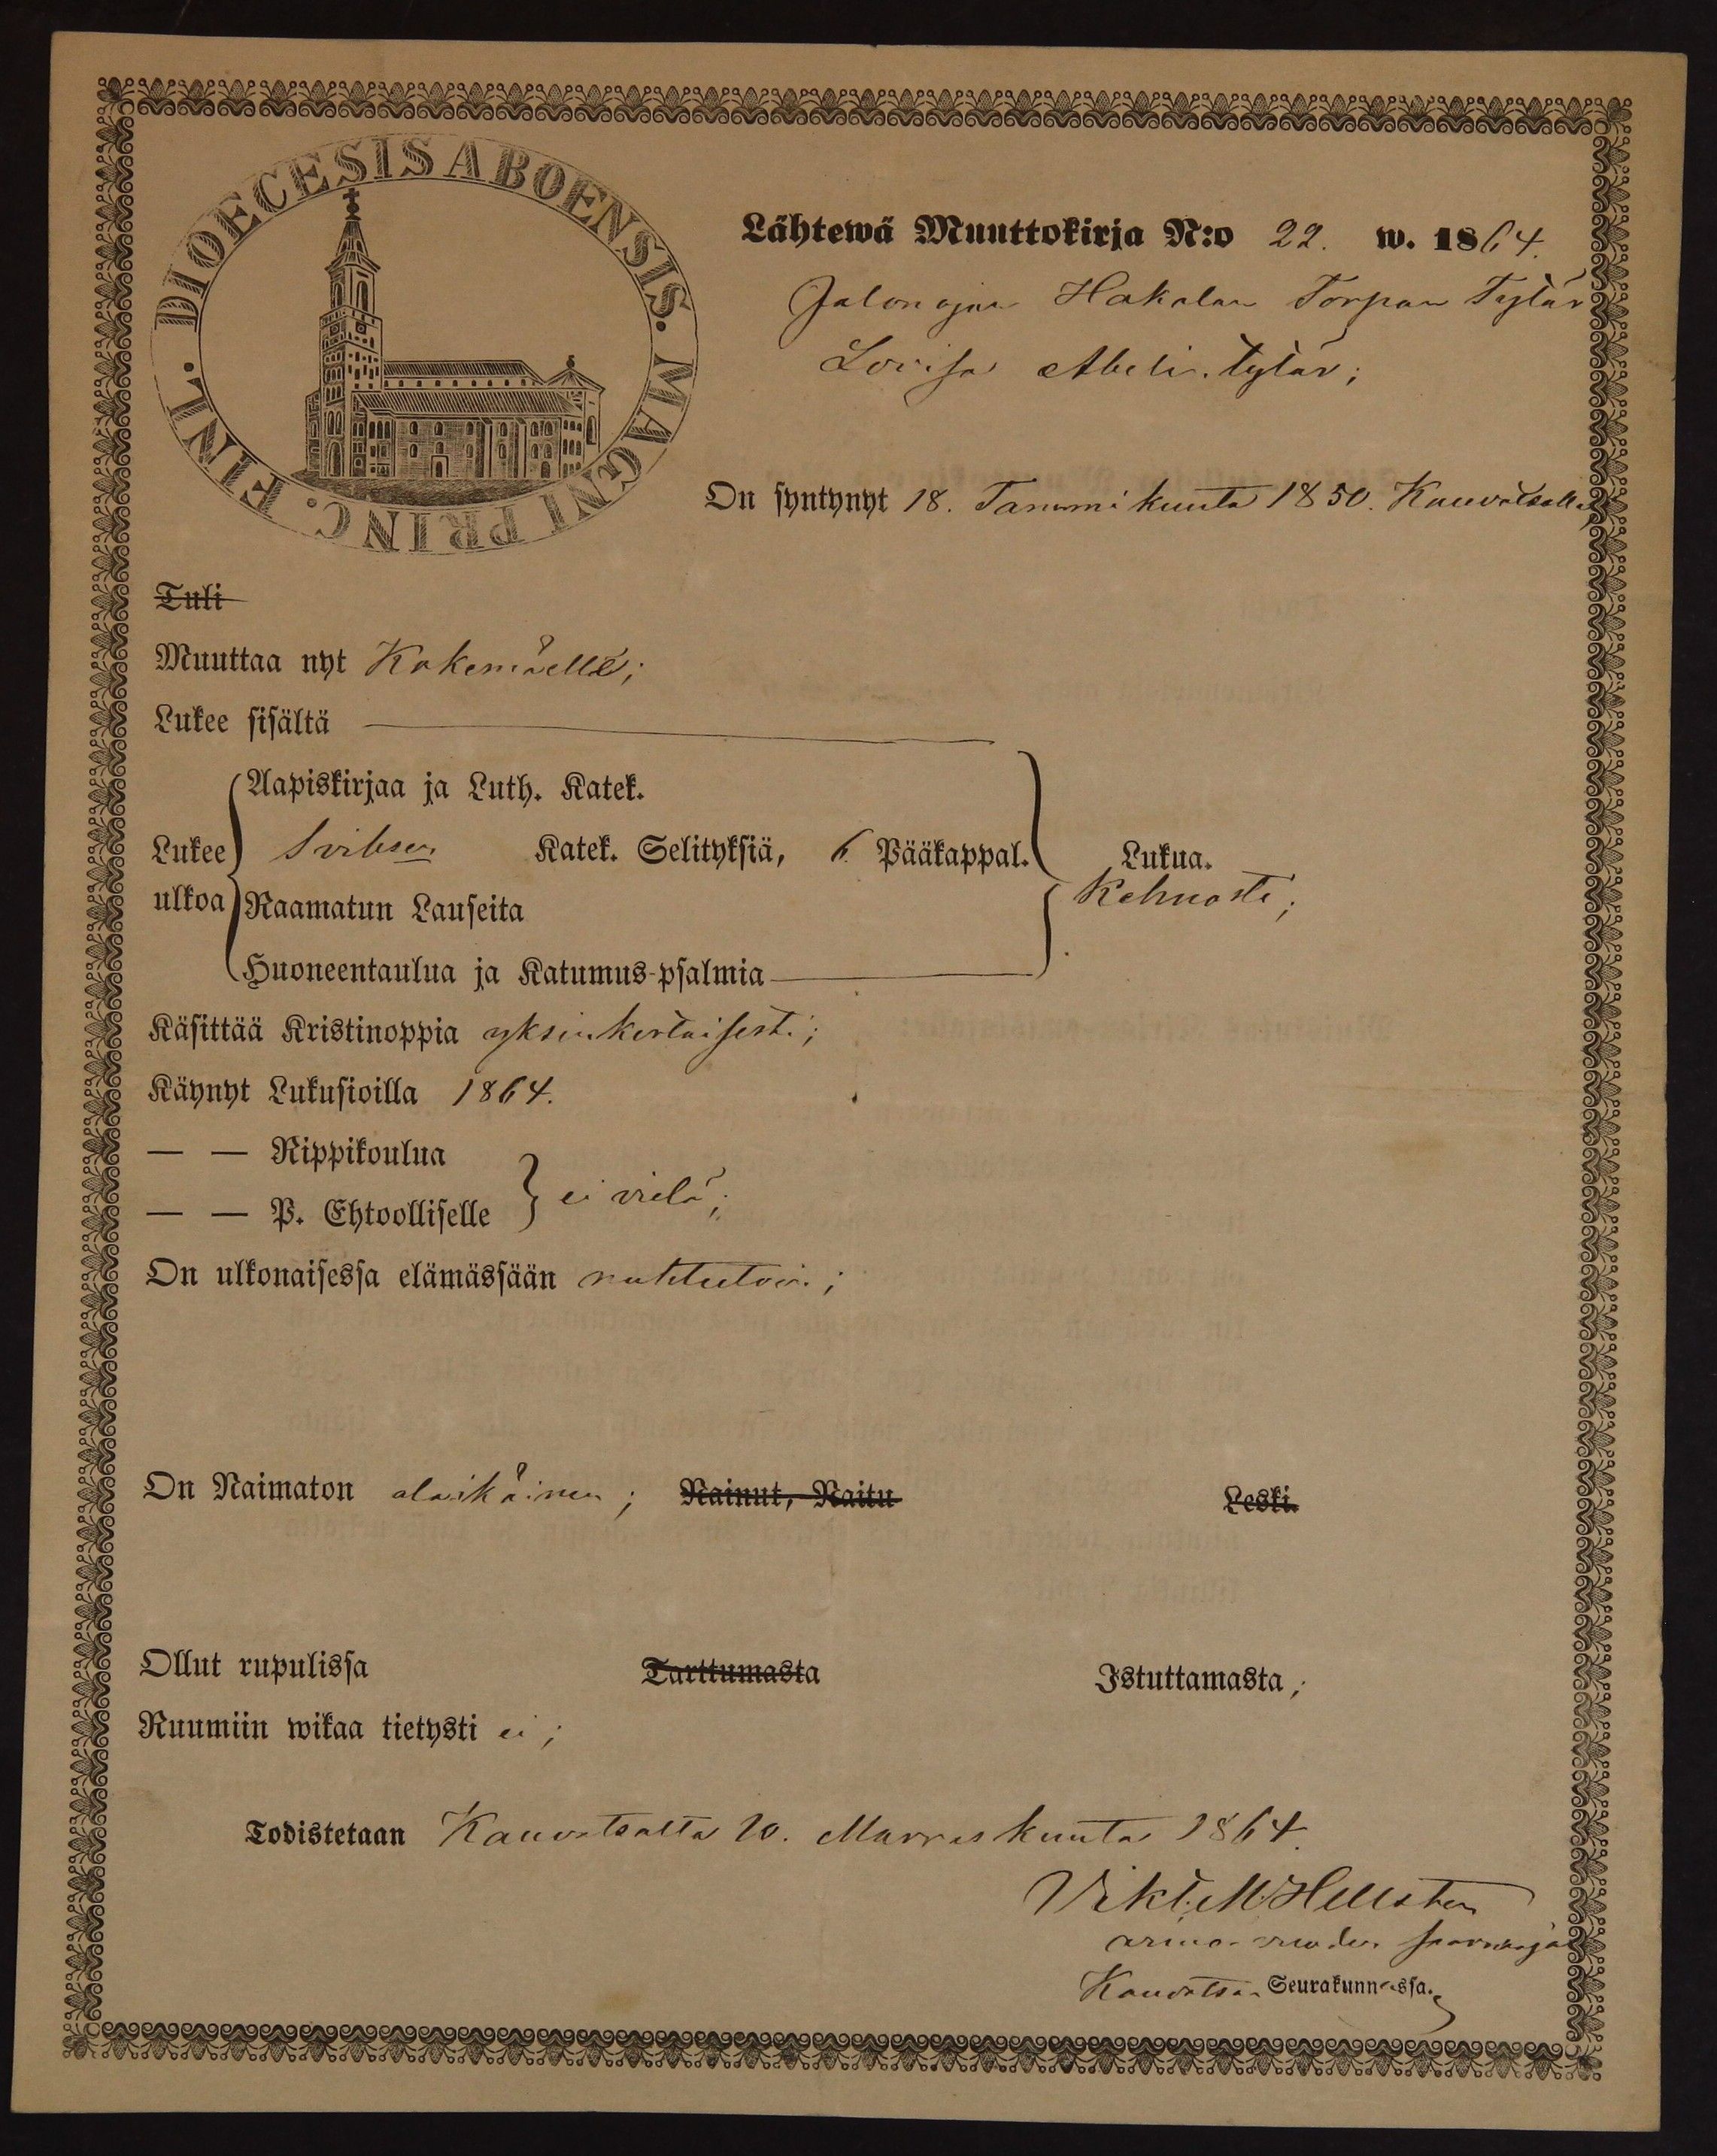 DIOECESIS ABOENSIS. MAGNI PRINC. FINL.
Lähtewä Muuttokirja N:o 22. w. 1864.
Jalonojan Hakolan Torpan Tytär
Lovisa Abelin tytär;
On syntynyt 18. Tammikuuta 1850. Kauvatsalla;
Tuli
Muuttaa nyt Kokemäelle;
Lukee sisältä
Aapiskirjaa ja Luth. Katek.
Lukee ulkoa Katek. Selityksiä, 6 Pääkappal. Lukua.
Kehnosti;
Raamatun Lauseita
Huoneentaulua ja Katumus-psalmia
Käsittää Kristinoppia yksinkertaisesti;
Käynyt Lukusioilla 1864.
— — Rippikoulua
— — P. Ehtoolliselle ei vielä;
On ulkonaisessa elämässään nuhteetoin;
On Naimaton alaikäinen; Nainut, Naitu Leski.
Ollut rupulissa Tarttumasta Istuttamasta;
Ruumiin wikaa tietysti ei;
Todistetaan Kauvatsalta 20. Marraskuuta 1864.
Vikt. M. Hellsten
armo-vuoden saarnaaja
Kauvatsan Seurakunnassa.